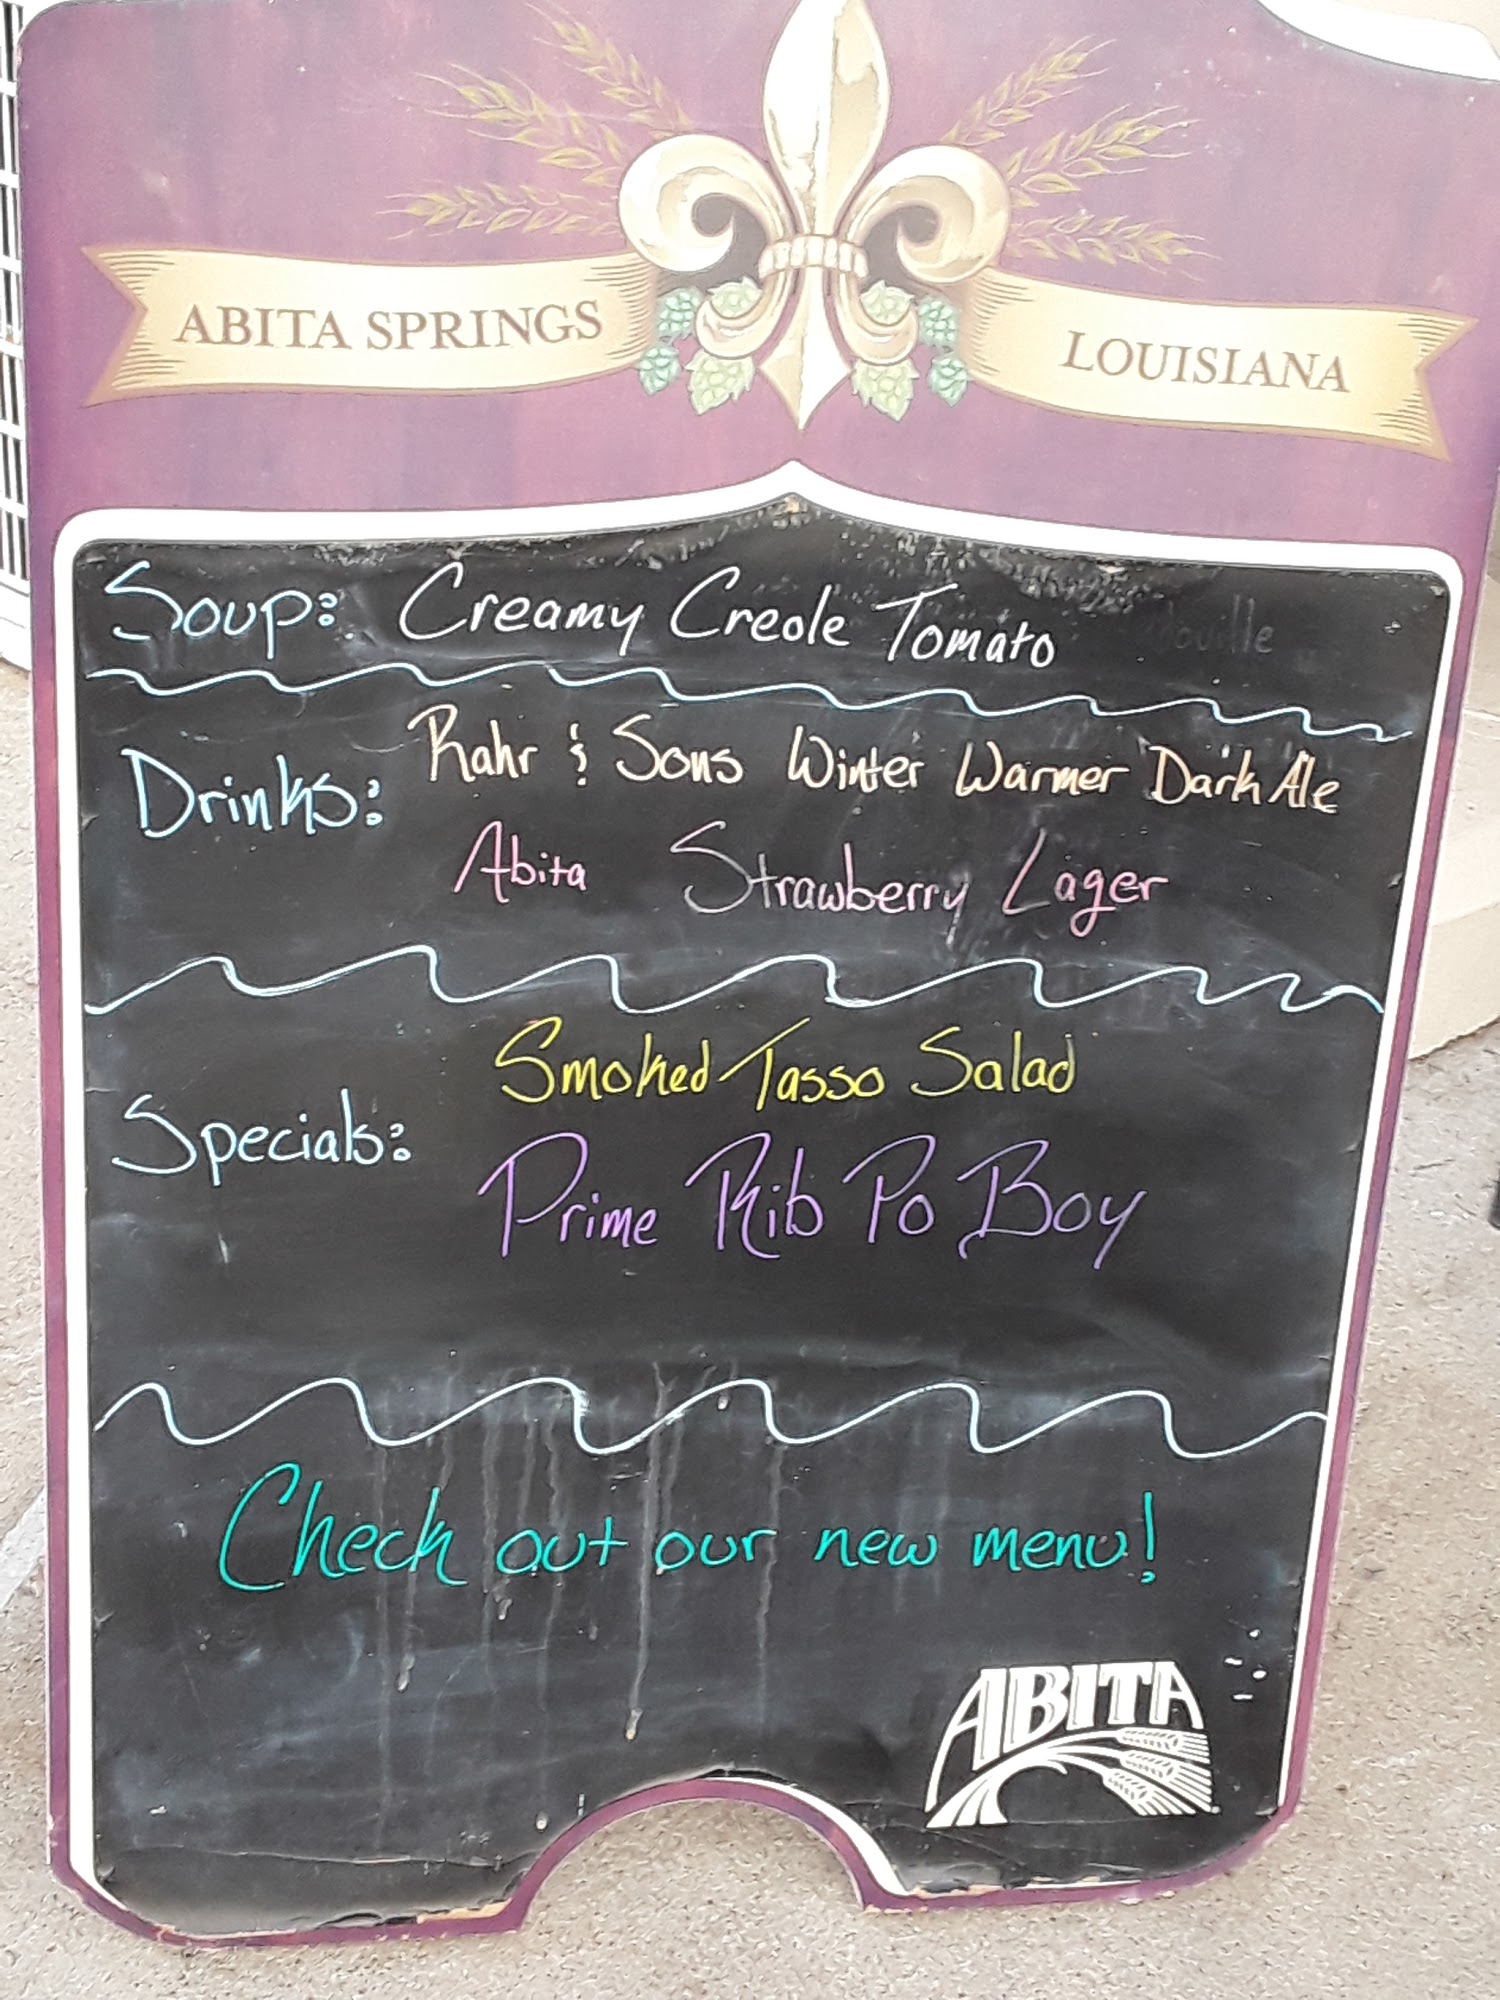 ABITA SPRINGS LOUISIANA
Soup: Creamy Creole Tomato
Drinks: Rahr & Sons Winter Warmer Dark Ale
Abita Strawberry Lager
Specials: Smoked Tasso Salad
Prime Rib Po Boy
Check out our new menu!
ABITA